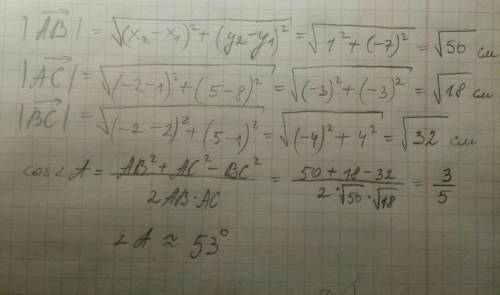 |AB| = √((x₂ − x₁)² + (y₂ − y₁)²) = √(1² + (−7)²) = √50 см
|AC| = √((−2−1)² + (5−8)²) = √((−3)² + (−3)²) = √18 см
|BC| = √((−2−2)² + (5−1)²) = √((−4)² + 4²) = √32 см
cos∠A = (AB² + AC² − BC²) / (2AB·AC) = (50 + 18 − 32) / (2·√50·√18) = 3/5
∠A ≈ 53°